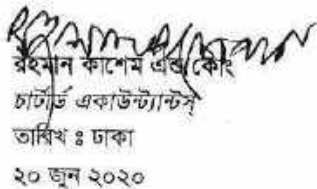 রহমান কাশেম এন্ড কোং
চার্টার্ড একাউন্ট্যান্টস্
তারিখ ঃ ঢাকা
২০ জুন ২০২০